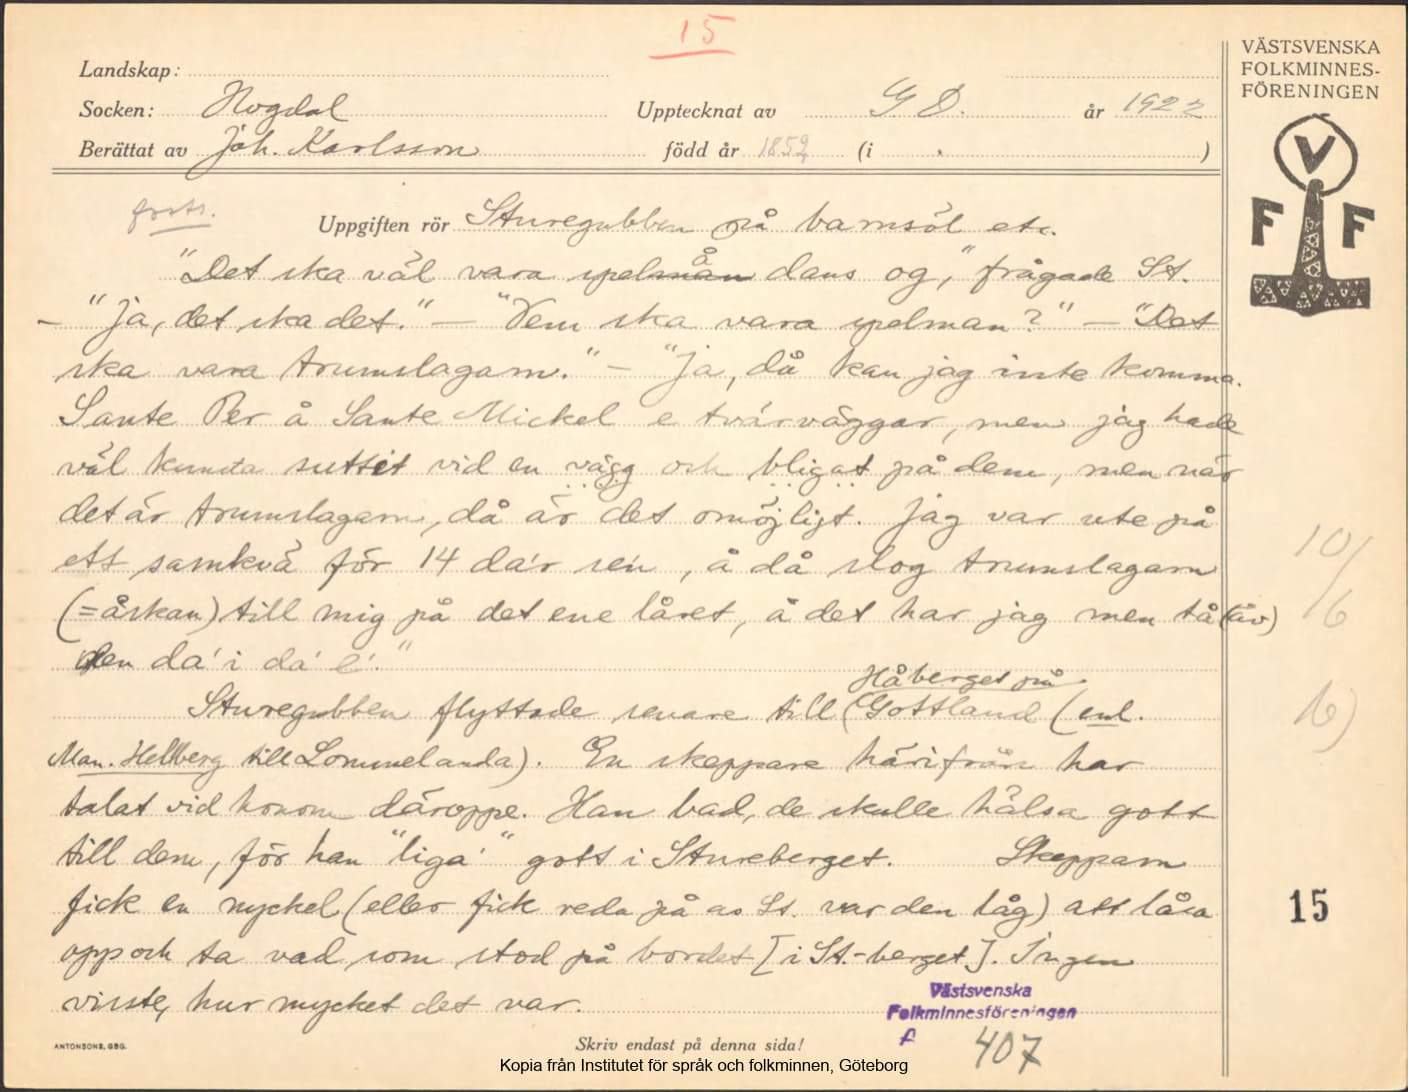 15
VÄSTSVENSKA
FOLKMINNES-
FÖRENINGEN
Landskap:
Socken: Hogdal Upptecknat av G D. år 1922
Berättat av Joh. Karlsson född år 1852 (i )
forts.
Uppgiften rör Sturegubben på barnsöl etc.
"Det ska väl vara spelmån dans og," frågade St.
– "Ja, det ska det." – "Vem ska vara spelman?" – "Det
ska vara trumslagarn." – "Ja, då kan jag inte komma.
Sante Per å Sante Mickel e tvärväggar, men jag hade
väl kunnta suttit vid en vägg och bligat på dem, men när
det är trumslagarn, då är det omöjligt. Jag var ute på
ett samkvä för 14 da'r se'n, å då slog trumslagarn
(= åskan) till mig på det ene låret, å det har jag men tå (av)
den da' i da' é."
Håberget på
Sturegubben flyttade senare till (Gottland (enl.
Man. Hellberg till Lommelanda). En skeppare härifrån har
talat vid honom däroppe. Han bad, de skulle hälsa gott
till dem, för han "liga'" gott i Stureberget. Skepparn
fick en nyckel (eller fick reda på av St. var den låg) att låsa
opp och ta vad som stod på bordet [i St.-berget]. Ingen
visste, hur mycket det var.
V
F F
10/6
6)
15
Västsvenska
Folkminnesföreningen
407
ANTONSONS, GBG.
Skriv endast på denna sida!
Kopia från Institutet för språk och folkminnen, Göteborg